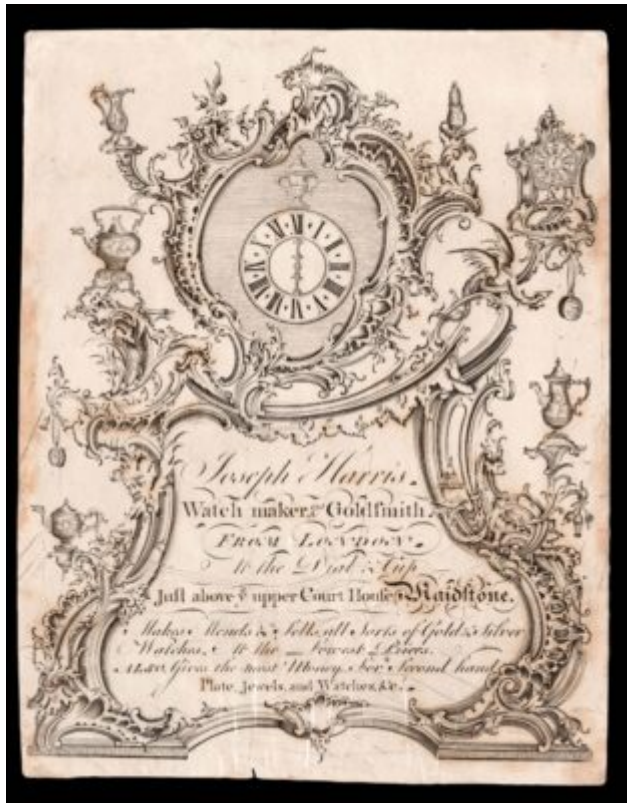 Joseph Harris.
Watch maker & Goldſmith
FROM LONDON.
to the Dial & Cup
Juſt above yᵉ upper Court Houſe Maidſtone.
Makes Mends & Sells all Sorts of Gold & Silver
Watches. At the Lowest Prices.
ALSO Gives the most Money For Second hand
Plate, Jewels, and Watches, &c.